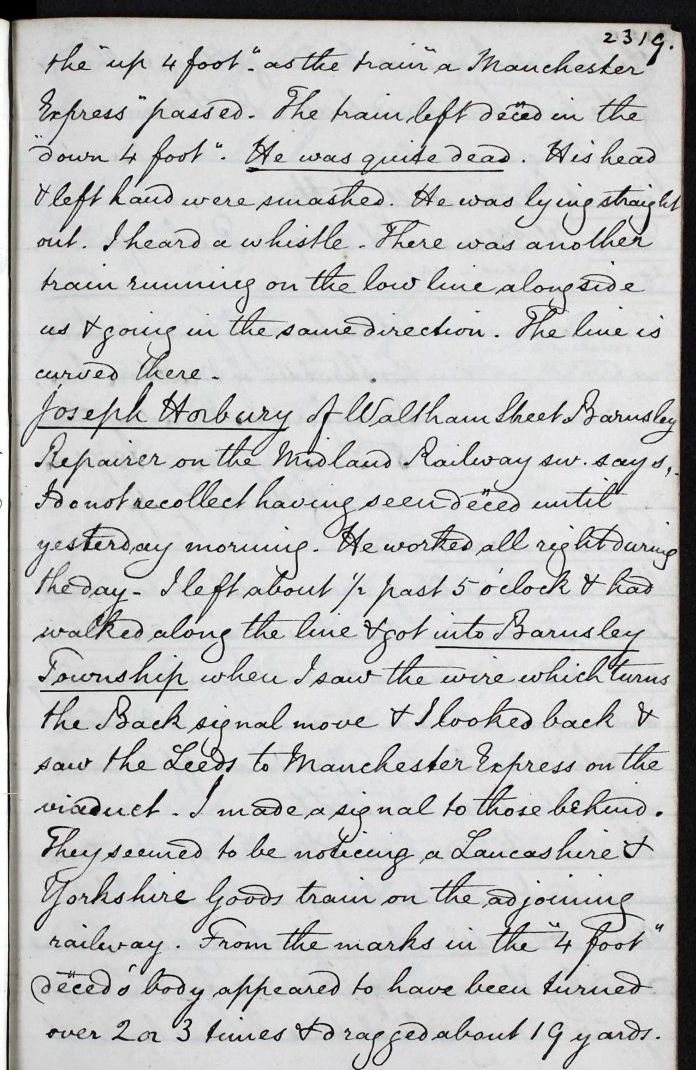 2319.
the "up 4 foot". as the train "a Manchester
Express" passed. The train left decēd in the
"down 4 foot". He was quite dead. His head
& left hand were smashed. He was lying straight
out. I heard a whistle. There was another
train running on the low line alongside
us & going in the same direction. The line is
curved there.
Joseph Horbury of Waltham Street Barnsley
Repairer on the Midland Railway sw. says,-
I do not recollect having seen decēd until
yesterday morning. He worked all right during
the day - I left about ½ past 5 o'clock & had
walked along the line & got into Barnsley
Township when I saw the wire which turns
the Back signal move & I looked back &
saw the Leeds to Manchester Express on the
viaduct. I made a signal to those behind.
They seemed to be noticing a Lancashire &
Yorkshire Goods train on the adjoining
railway. From the marks in the "4 foot"
decēd's body appeared to have been turned
over 2 or 3 times & dragged about 19 yards.